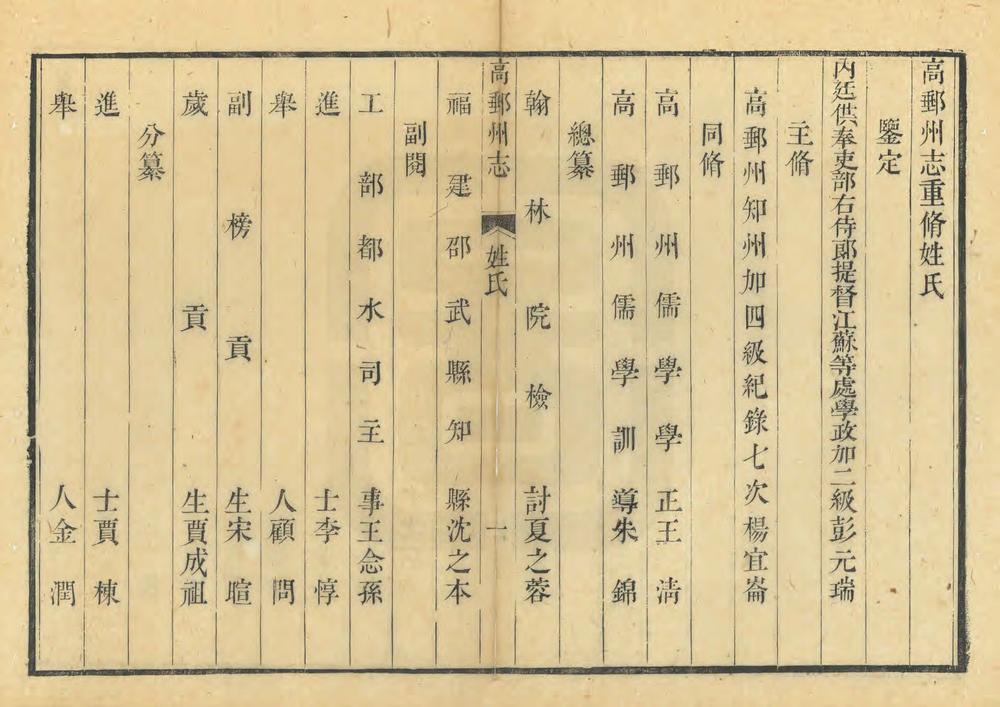 高郵州志重脩姓氏
鑒定
內廷供奉吏部右侍郎提督江蘇等處學政加二級彭元瑞
主脩
高郵州知州加四級紀錄七次楊宜崙
同脩
高郵州儒學學正王淸
高郵州儒學訓導朱錦
總纂
翰林院檢討夏之蓉
高郵州志 姓氏 一
福建邵武縣知縣沈之本
副閱
工部都水司主事王念孫
進士李惇
舉人顧問
副榜貢生宋暄
歲貢生賈成祖
分纂
進士賈棟
舉人金潤